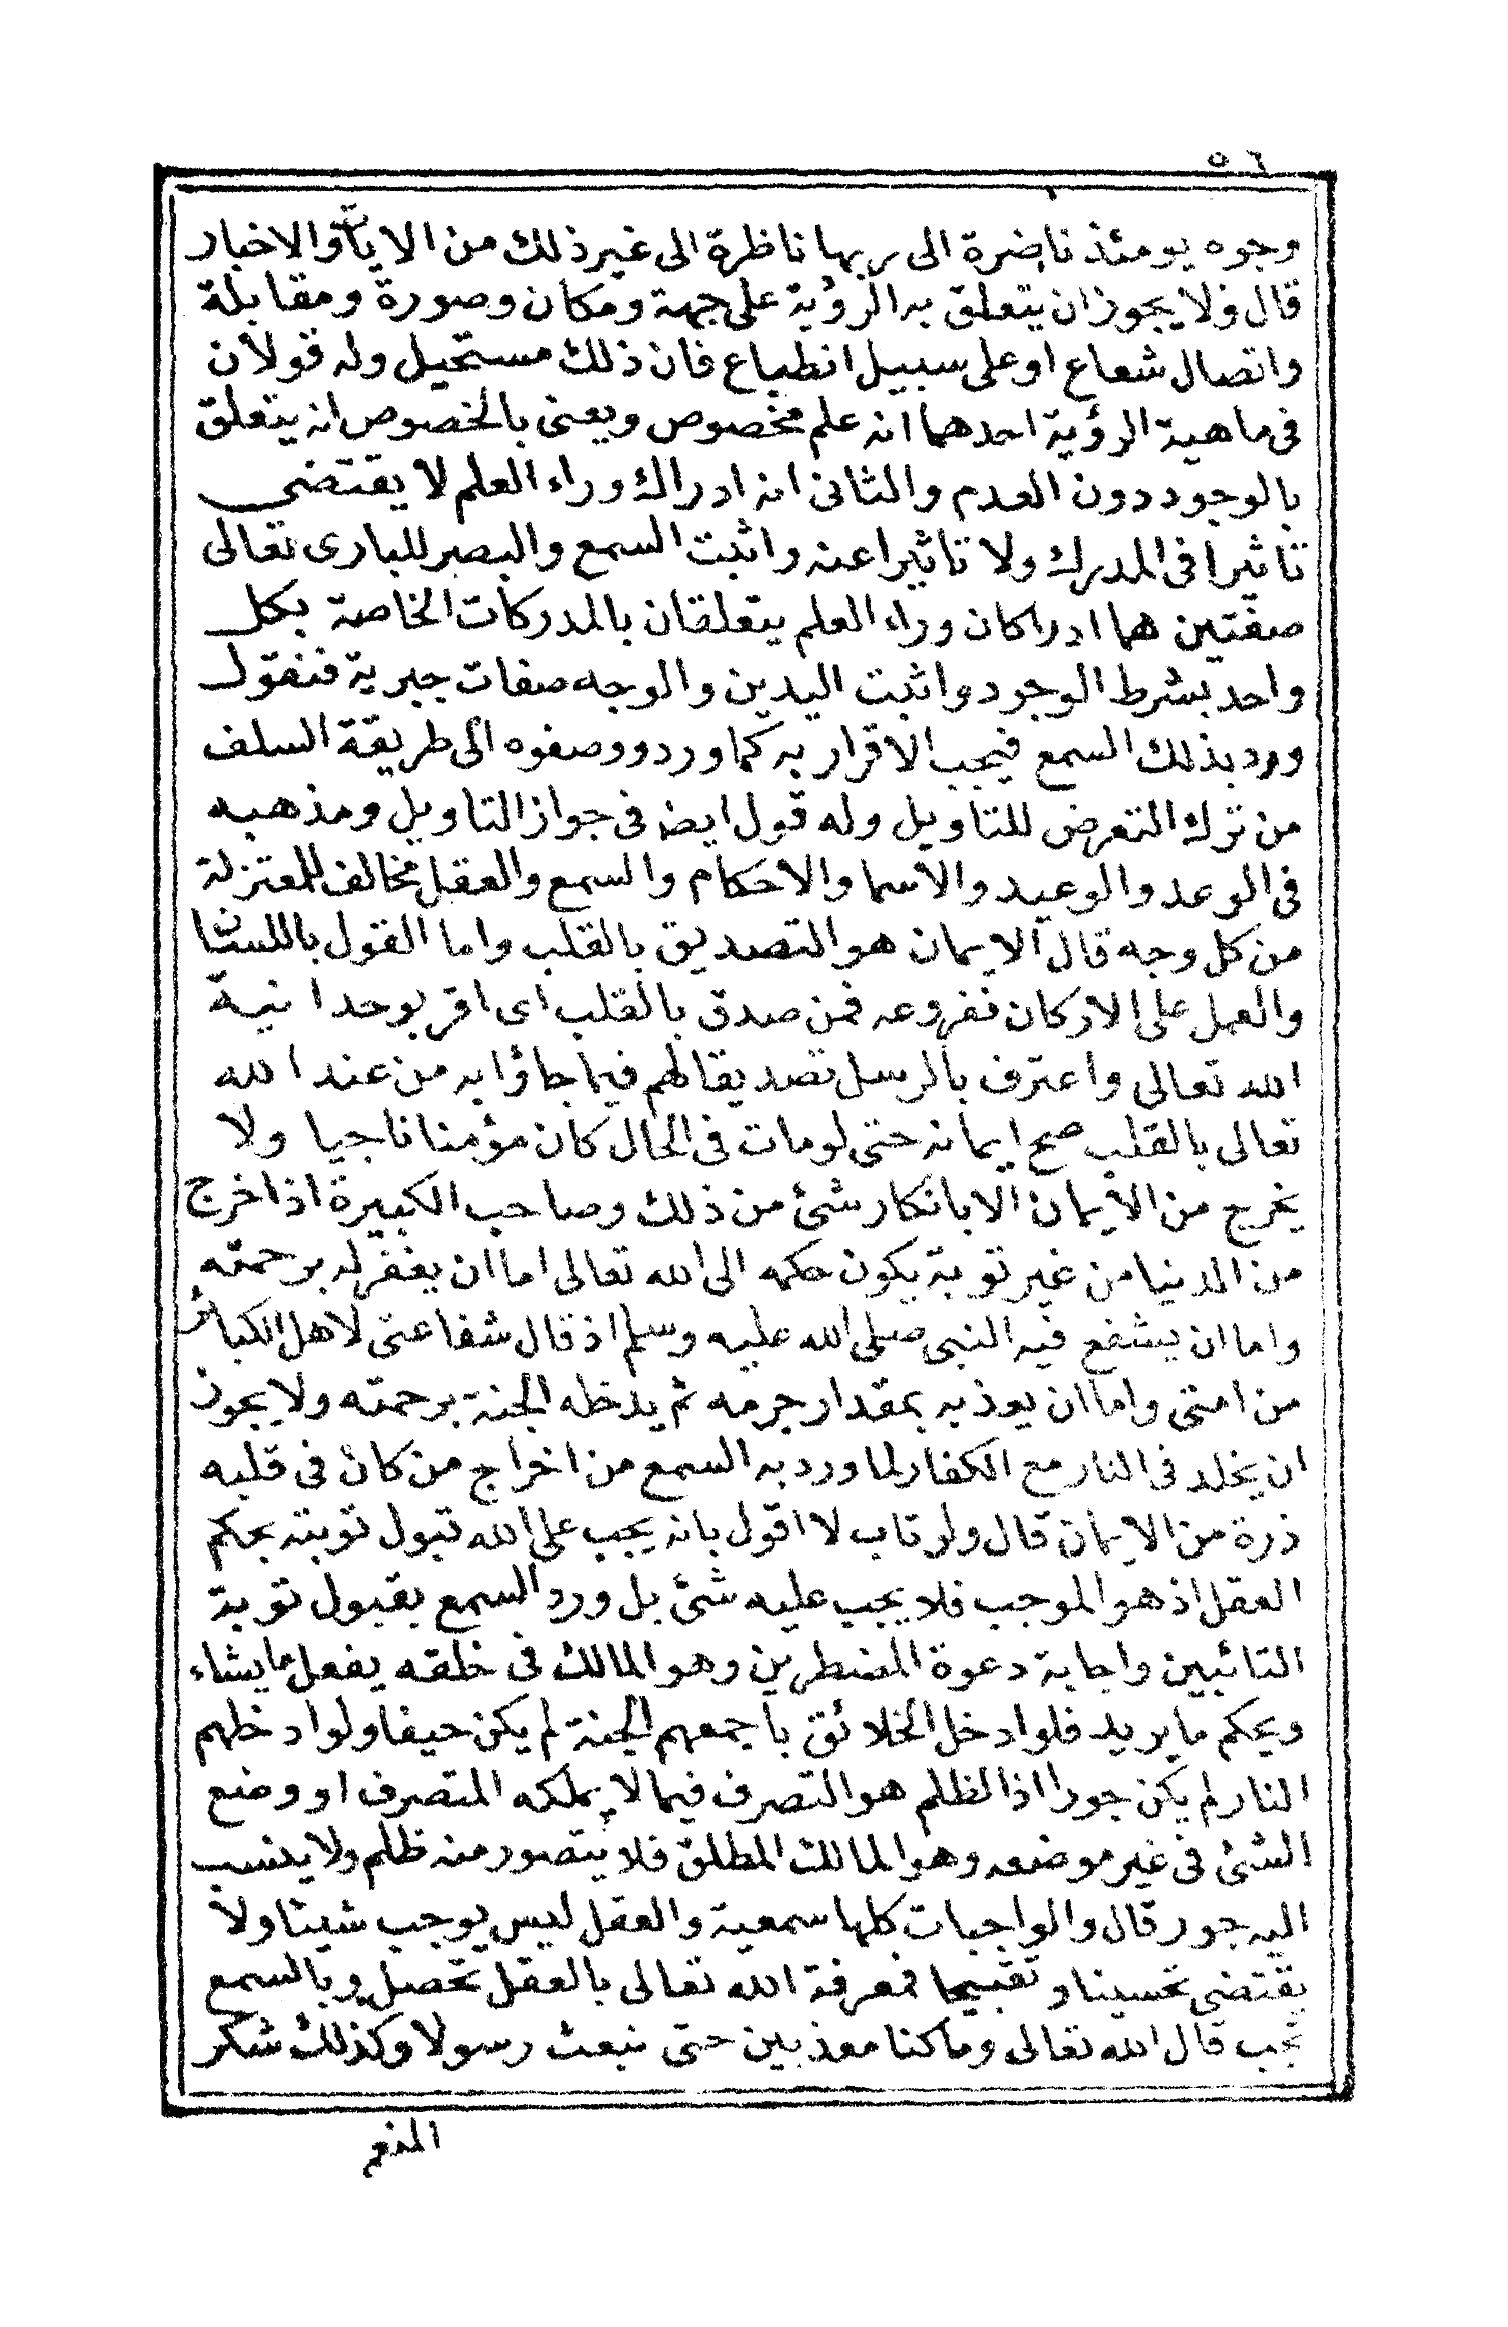 ٥٦
وجوه يومئذ ناضرة الى ربها ناظرة الى غير ذلك من الايات والاخبار
قال ولا يجوز ان يتعلق به الرؤية على جهة ومكان وصورة ومقابلة
واتصال شعاع او على سبيل انطباع فان ذلك مستحيل وله قولان
فى ماهية الرؤية احدهما انه علم مخصوص ويعنى بالخصوص انه يتعلق
بالوجود دون العدم والثانى انه ادراك وراء العلم لا يقتضى
تاثيرا فى المدرك ولا تاثيرا عنه واثبت السمع والبصر للبارى تعالى
صفتين هما ادراكان وراء العلم يتعلقان بالمدركات الخاصة بكل
واحد بشرط الوجود واثبت اليدين والوجه صفات جبرية فنقول
ورد بذلك السمع فيجب الاقرار به كما ورد ووصفوه الى طريقة السلف
من ترك التعرض للتاويل وله قول ايضا فى جواز التاويل ومذهبه
فى الوعد والوعيد والاسما والاحكام والسمع والعقل مخالف للمعتزلة
من كل وجه قال الايمان هو التصديق بالقلب واما القول باللسان
والعمل على الاركان ففروعه فمن صدق بالقلب اى اقر بوحدانية
الله تعالى واعترف بالرسل تصديقا لهم فيما جاؤا به من عند الله
تعالى بالقلب صح ايمانه حتى لو مات فى الحال كان مؤمنا ناجيا ولا
يخرج من الايمان الا بانكار شئ من ذلك وصاحب الكبيرة اذا خرج
من الدنيا من غير توبة يكون حكمه الى الله تعالى اما ان يغفر له برحمته
واما ان يشفع فيه النبى صلى الله عليه وسلم اذ قال شفاعتى لاهل الكبائر
من امتى واما ان يعذبه بمقدار جرمه ثم يدخله الجنة برحمته ولا يجوز
ان يخلد فى النار مع الكفار لما ورد به السمع من اخراج من كان فى قلبه
ذرة من الايمان قال ولو تاب لا اقول بانه يجب على الله قبول توبته بحكم
العقل اذ هو الموجب فلا يجب عليه شئ بل ورد السمع بقبول توبة
التائبين واجابة دعوة المضطرين وهو المالك فى خلقه يفعل ما يشاء
ويحكم ما يريد فلو ادخل الخلائق باجمعهم الجنة لم يكن حيفا ولو ادخلهم
النار لم يكن جورا اذ الظلم هو التصرف فيما لا يملكه المتصرف او وضع
الشئ فى غير موضعه وهو المالك المطلق فلا يتصور منه ظلم ولا ينسب
اليه جور قال والواجبات كلها سمعية والعقل ليس يوجب شيئا ولا
يقتضى تحسينا و تقبيحا فمعرفة الله تعالى بالعقل تحصل وبالسمع
تجب قال الله تعالى وما كنا معذبين حتى نبعث رسولا وكذلك شكر
المنعم